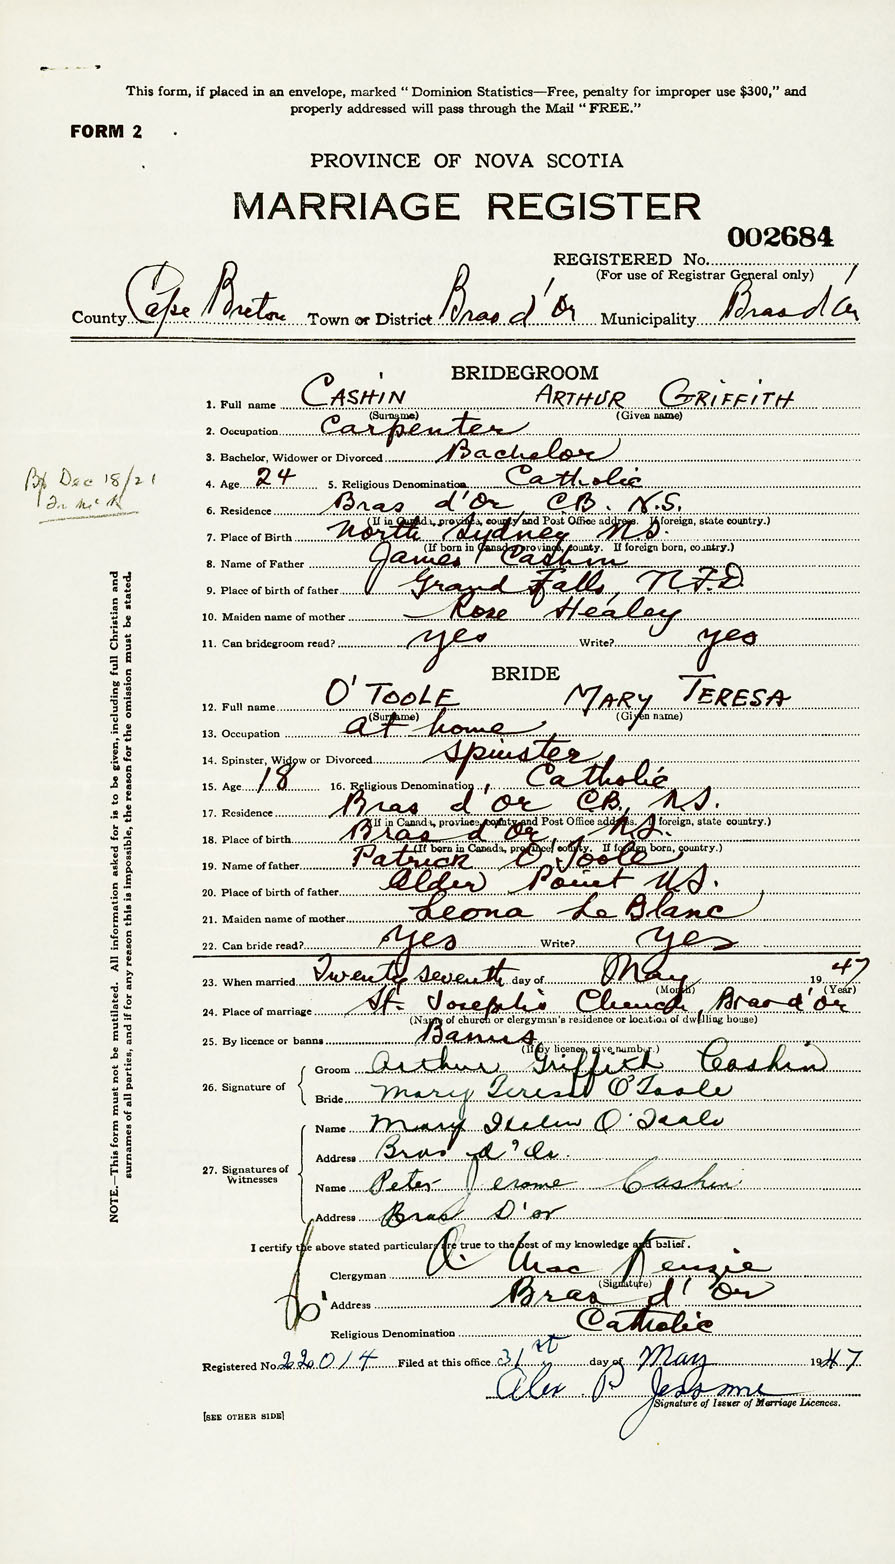 This form, if placed in an envelope, marked “ Dominion Statistics—Free, penalty for improper use $300,” and
properly addressed will pass through the Mail “ FREE.”
FORM 2
PROVINCE OF NOVA SCOTIA
MARRIAGE REGISTER
002684
REGISTERED No.
(For use of Registrar General only)
County Cape Breton Town or District Bras d'Or Municipality Bras d'Or
BRIDEGROOM
1. Full name CASHIN ARTHUR GRIFFITH
(Surname) (Given name)
2. Occupation Carpenter
3. Bachelor, Widower or Divorced Bachelor
Dec 18/21
4. Age 24 5. Religious Denomination Catholic
6. Residence Bras d'Or, C.B. N.S.
(If in Canada, province, county and Post Office address. If foreign, state country.)
7. Place of Birth North Sydney N.S.
(If born in Canada, province, county. If foreign born, country.)
8. Name of Father James Cashin
9. Place of birth of father Grand Falls, N.F.D
10. Maiden name of mother Rose Healey
11. Can bridegroom read? yes Write? yes
BRIDE
12. Full name O'TOOLE MARY TERESA
(Surname) (Given name)
13. Occupation at home
14. Spinster, Widow or Divorced Spinster
15. Age 18 16. Religious Denomination Catholic
17. Residence Bras d'Or C.B. N.S.
(If in Canada, province, county and Post Office address. If foreign, state country.)
18. Place of birth Bras d'Or N.S.
(If born in Canada, province, county. If foreign born, country.)
19. Name of father Patrick O'Toole
20. Place of birth of father Alder Point N.S.
21. Maiden name of mother Leona Le Blanc
22. Can bride read? Yes Write? yes
23. When married Twenty seventh day of May 1947
(Month) (Year)
24. Place of marriage St. Joseph's Church, Bras d'Or
(Name of church or clergyman's residence or location of dwelling house)
25. By licence or banns Banns
(If by licence, give number.)
26. Signature of
Groom Arthur Griffith Cashin
Bride Mary Teresa O'Toole
27. Signatures of Witnesses
Name Mary Helen O'Toole
Address Bras d'Or.
Name Peter Jerome Cashin
Address Bras D'or
I certify the above stated particulars are true to the best of my knowledge and belief.
Clergyman A. MacKenzie
(Signature)
Address Bras d'Or
Religious Denomination Catholic
Registered No. 22014 Filed at this office 31st day of May 1947
Alex P Jessome
Signature of Issuer of Marriage Licences.
[SEE OTHER SIDE]
NOTE.—This form must not be mutilated. All information asked for is to be given, including full Christian and
surnames of all parties, and if for any reason this is impossible, the reason for the omission must be stated.